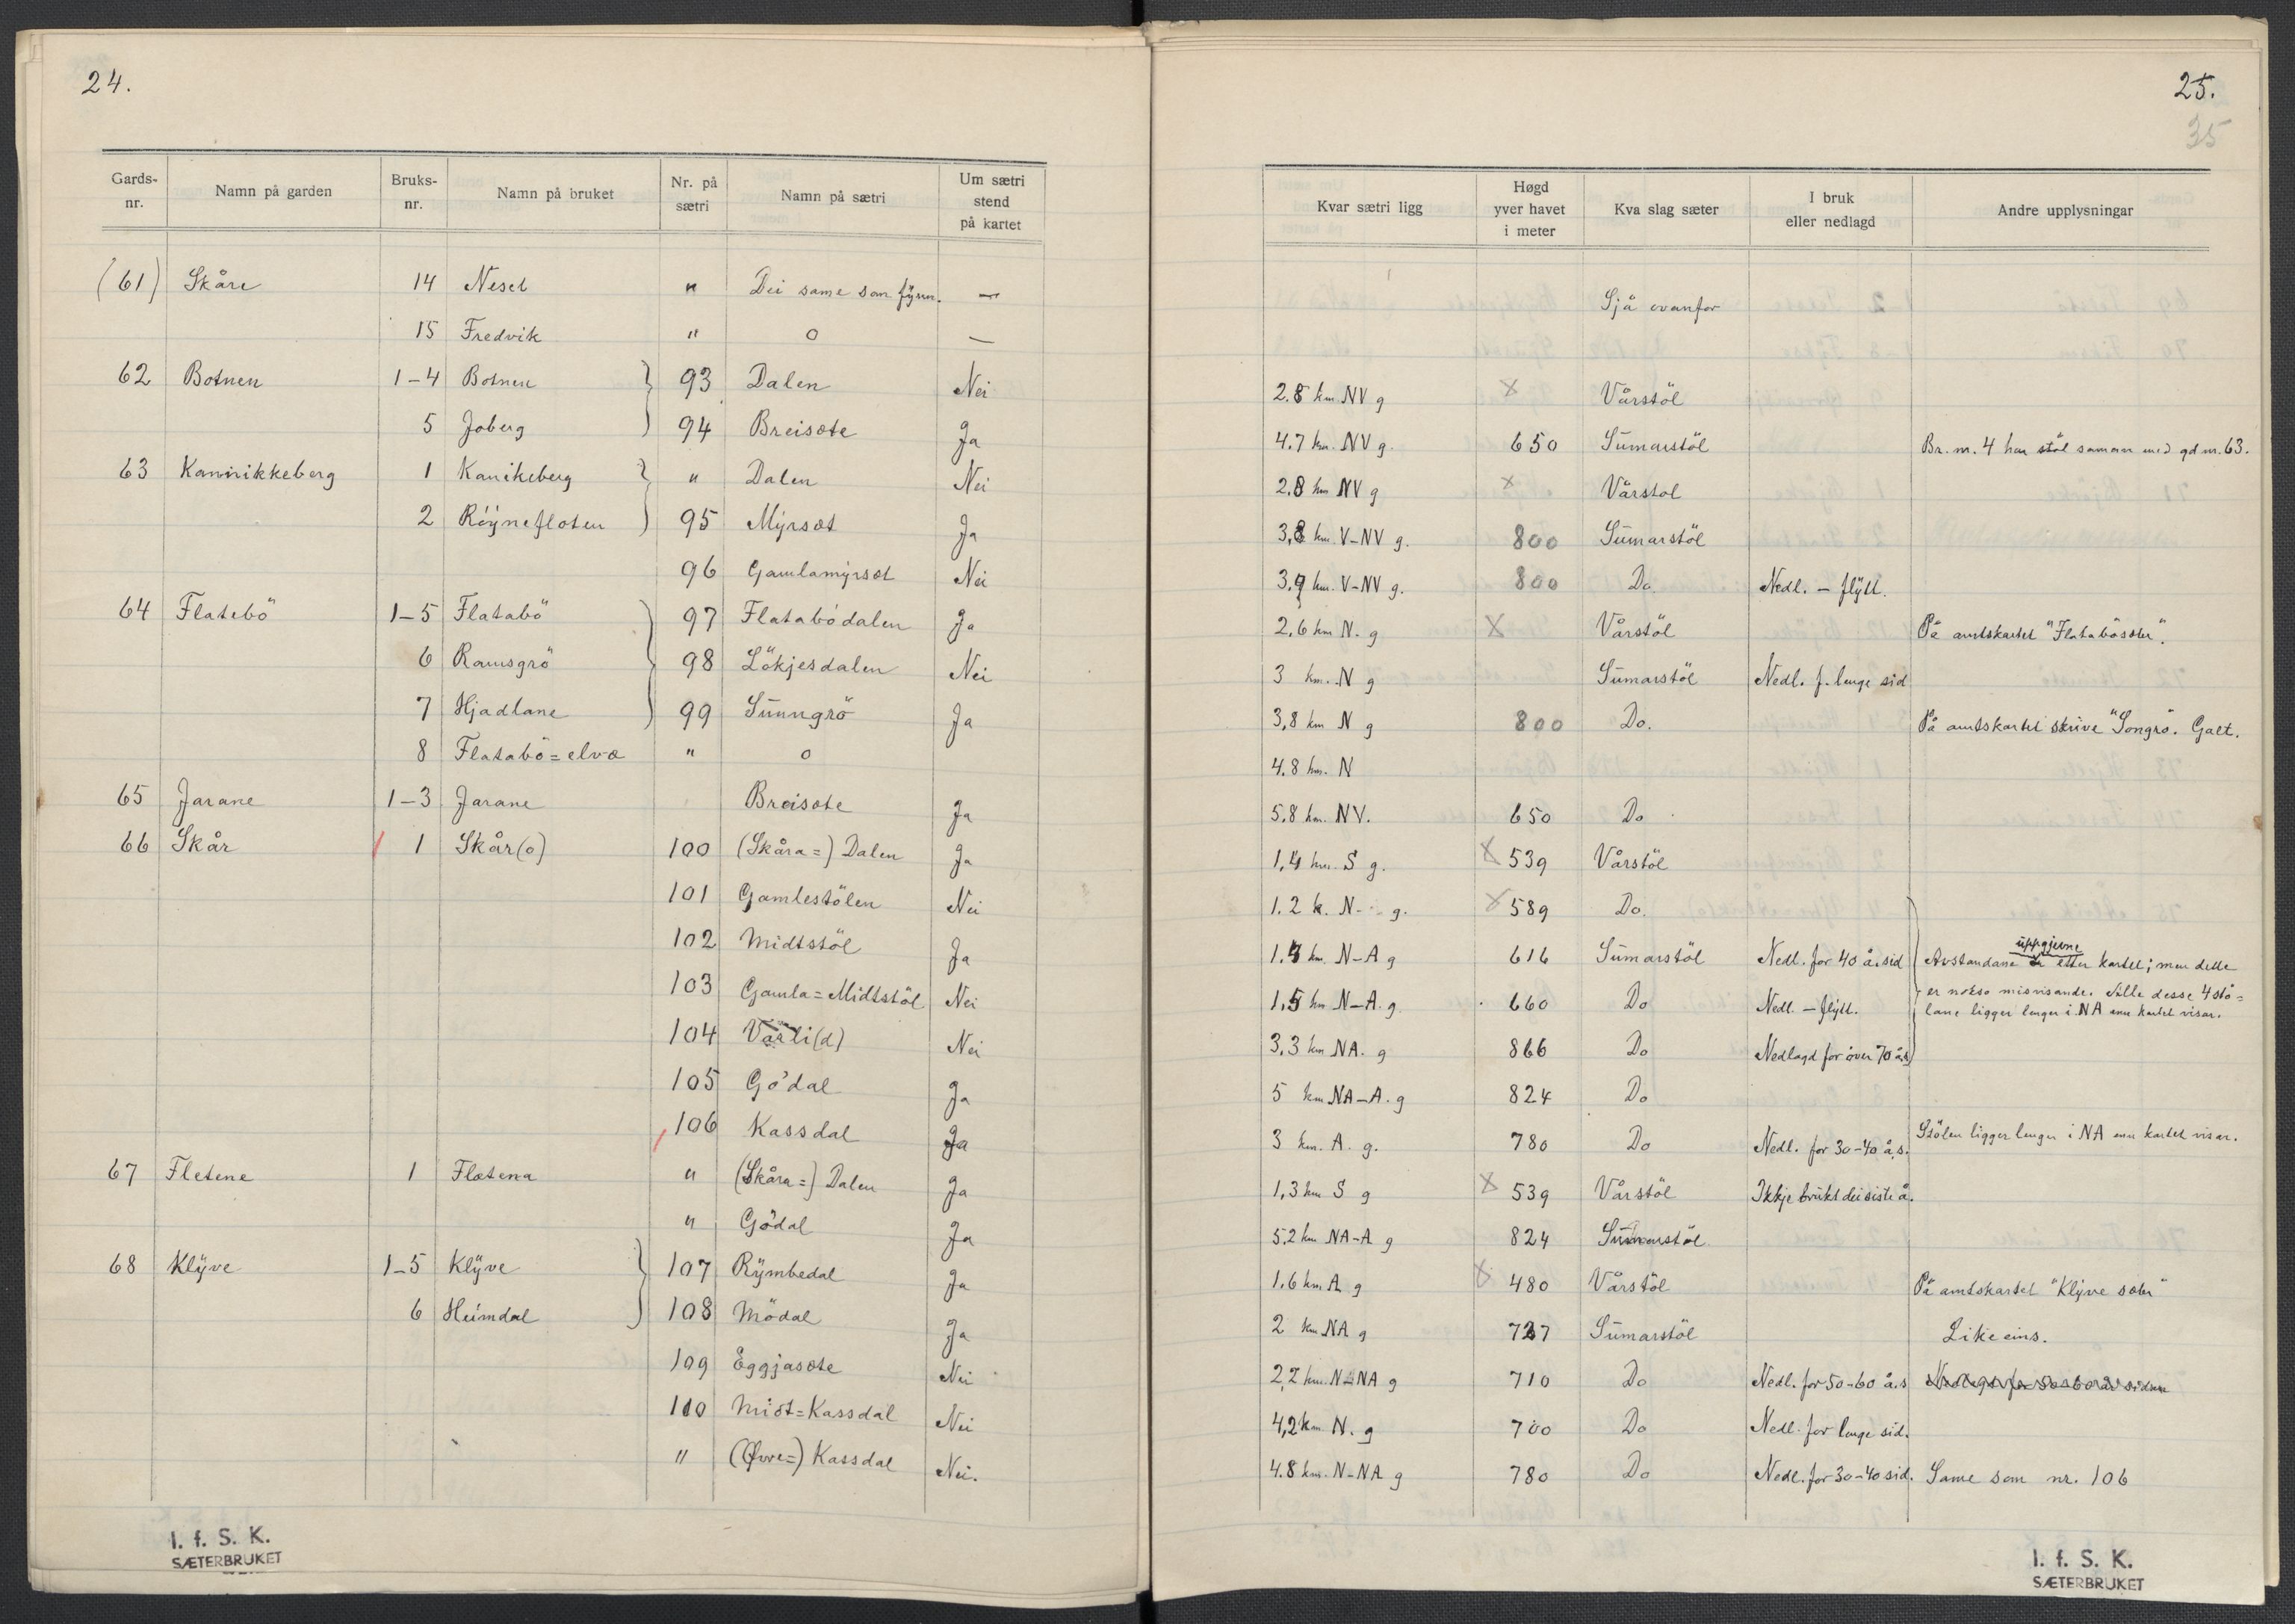 24.
Gards- nr. | Namn på garden | Bruks- nr. | Namn på bruket | Nr. på sætri | Namn på sætri | Um sætri stend på kartet
(61) | Skåre | 14 | Neset | " | Dei same som fyrr. | —
15 | Fredvik | " | o | —
62 | Botnen | 1-4 | Botnen } | 93 | Dalen | Nei
5 | Joberg ) | 94 | Breisete | Ja
63 | Kannikkeberg | 1 | Kanikeberg } | " | Dalen | Nei
2 | Röynefloten ) | 95 | Myrsæt | Ja
96 | Gamlamyrsæt | Nei
64 | Flatebö | 1-5 | Flatabö | 97 | Flatabödalen | Ja
6 | Ramsgrö } | 98 | Lökjesdalen | Nei
7 | Hjadlane ) | 99 | Sunngrö | Ja
8 | Flatabö=elvæ | " | o
65 | Jarane | 1-3 | Jarane | Breisete | Ja
66 | Skår | 1 | Skår(o) | 100 | (Skåra=) Dalen | Ja
101 | Gamlestölen | Nei
102 | Midtstöl | Ja
103 | Gamla=Midtstöl | Nei
104 | Vårli(d) | Nei
105 | Gödal | Ja
106 | Kassdal | Ja
67 | Fletene | 1 | Flatena | " | (Skåra=) Dalen | Ja
" | Gödal | Ja
68 | Klyve | 1-5 | Klyve } | 107 | Rymbedal | Ja
6 | Heimdal ) | 108 | Mödal | Ja
109 | Eggjasete | Nei
110 | Midt=Kassdal | Nei
" | (Øvre=) Kassdal | Nei.
I. f. S. K.
SÆTERBRUKET
25.
35
Kvar sætri ligg | Høgd yver havet i meter | Kva slag sæter | I bruk eller nedlagd | Andre upplysningar
Sjå ovanfor
2.8 km NV g | x | Vårstöl
4.7 km. NV g. | 650 | Sumarstöl | Br. nr. 4 har stöl saman med gd nr. 63.
2.8 km NV g | x | Vårstöl
3,8 km. V-NV g. | 800 | Sumarstöl
3,9 km. V-NV g. | 800 | Do. | Nedl. - flytt.
2,6 km N. g | X | Vårstöl | På amtskartet "Flatabösæter".
3 km. N g | Sumarstöl | Nedl. f. lenge sid
3,8 km N g | 800 | Do. | På amtskartet skrive "Songrö". Galt.
4.8 km. N
5.8 km. NV. | 650 | Do
1,4 km. S g. | X 539 | Vårstöl
1.2 k. N- g. | X 589 | Do.
1.4 km. N-A g | 616 | Sumarstöl | Nedl. for 40 å. sid | Avstandane uppgjevne etter kartet; men dette
1,5 km N-A. g | 660 | Do | Nedl. - flytt. | er nokso misvisande. Alle desse 4 stö=
lane ligger lenger i NA enn kartet visar.
3.3 km NA. g | 866 | Do | Nedlagd for över 70 å.s
5 km NA-A. g | 824 | Do
3 km. A. g. | 780 | Do | Nedl. for 30-40 å.s. | Stölen ligger lenger i NA enn kartet visar.
1,3 km S g | X 539 | Vårstöl | Ikkje brukt dei siste å.
5.2 km NA-A g | 824 | Sumarstöl
1.6 km A g | X 480 | Vårstöl | På amtskartet "Klyve sæter"
2 km NA g | 727 | Sumarstöl | Likeeins.
2,2 km. N-NA g | 710 | Do | Nedl. for 50-60 å.s | Nedlagt for 50-60 år sidan
4,2 km N. g | 700 | Do | Nedl. for lenge sid.
4.8 km. N-NA g | 780 | Do | Nedl. for 30-40 sid. | Same som nr. 106
I. f. S. K.
SÆTERBRUKET